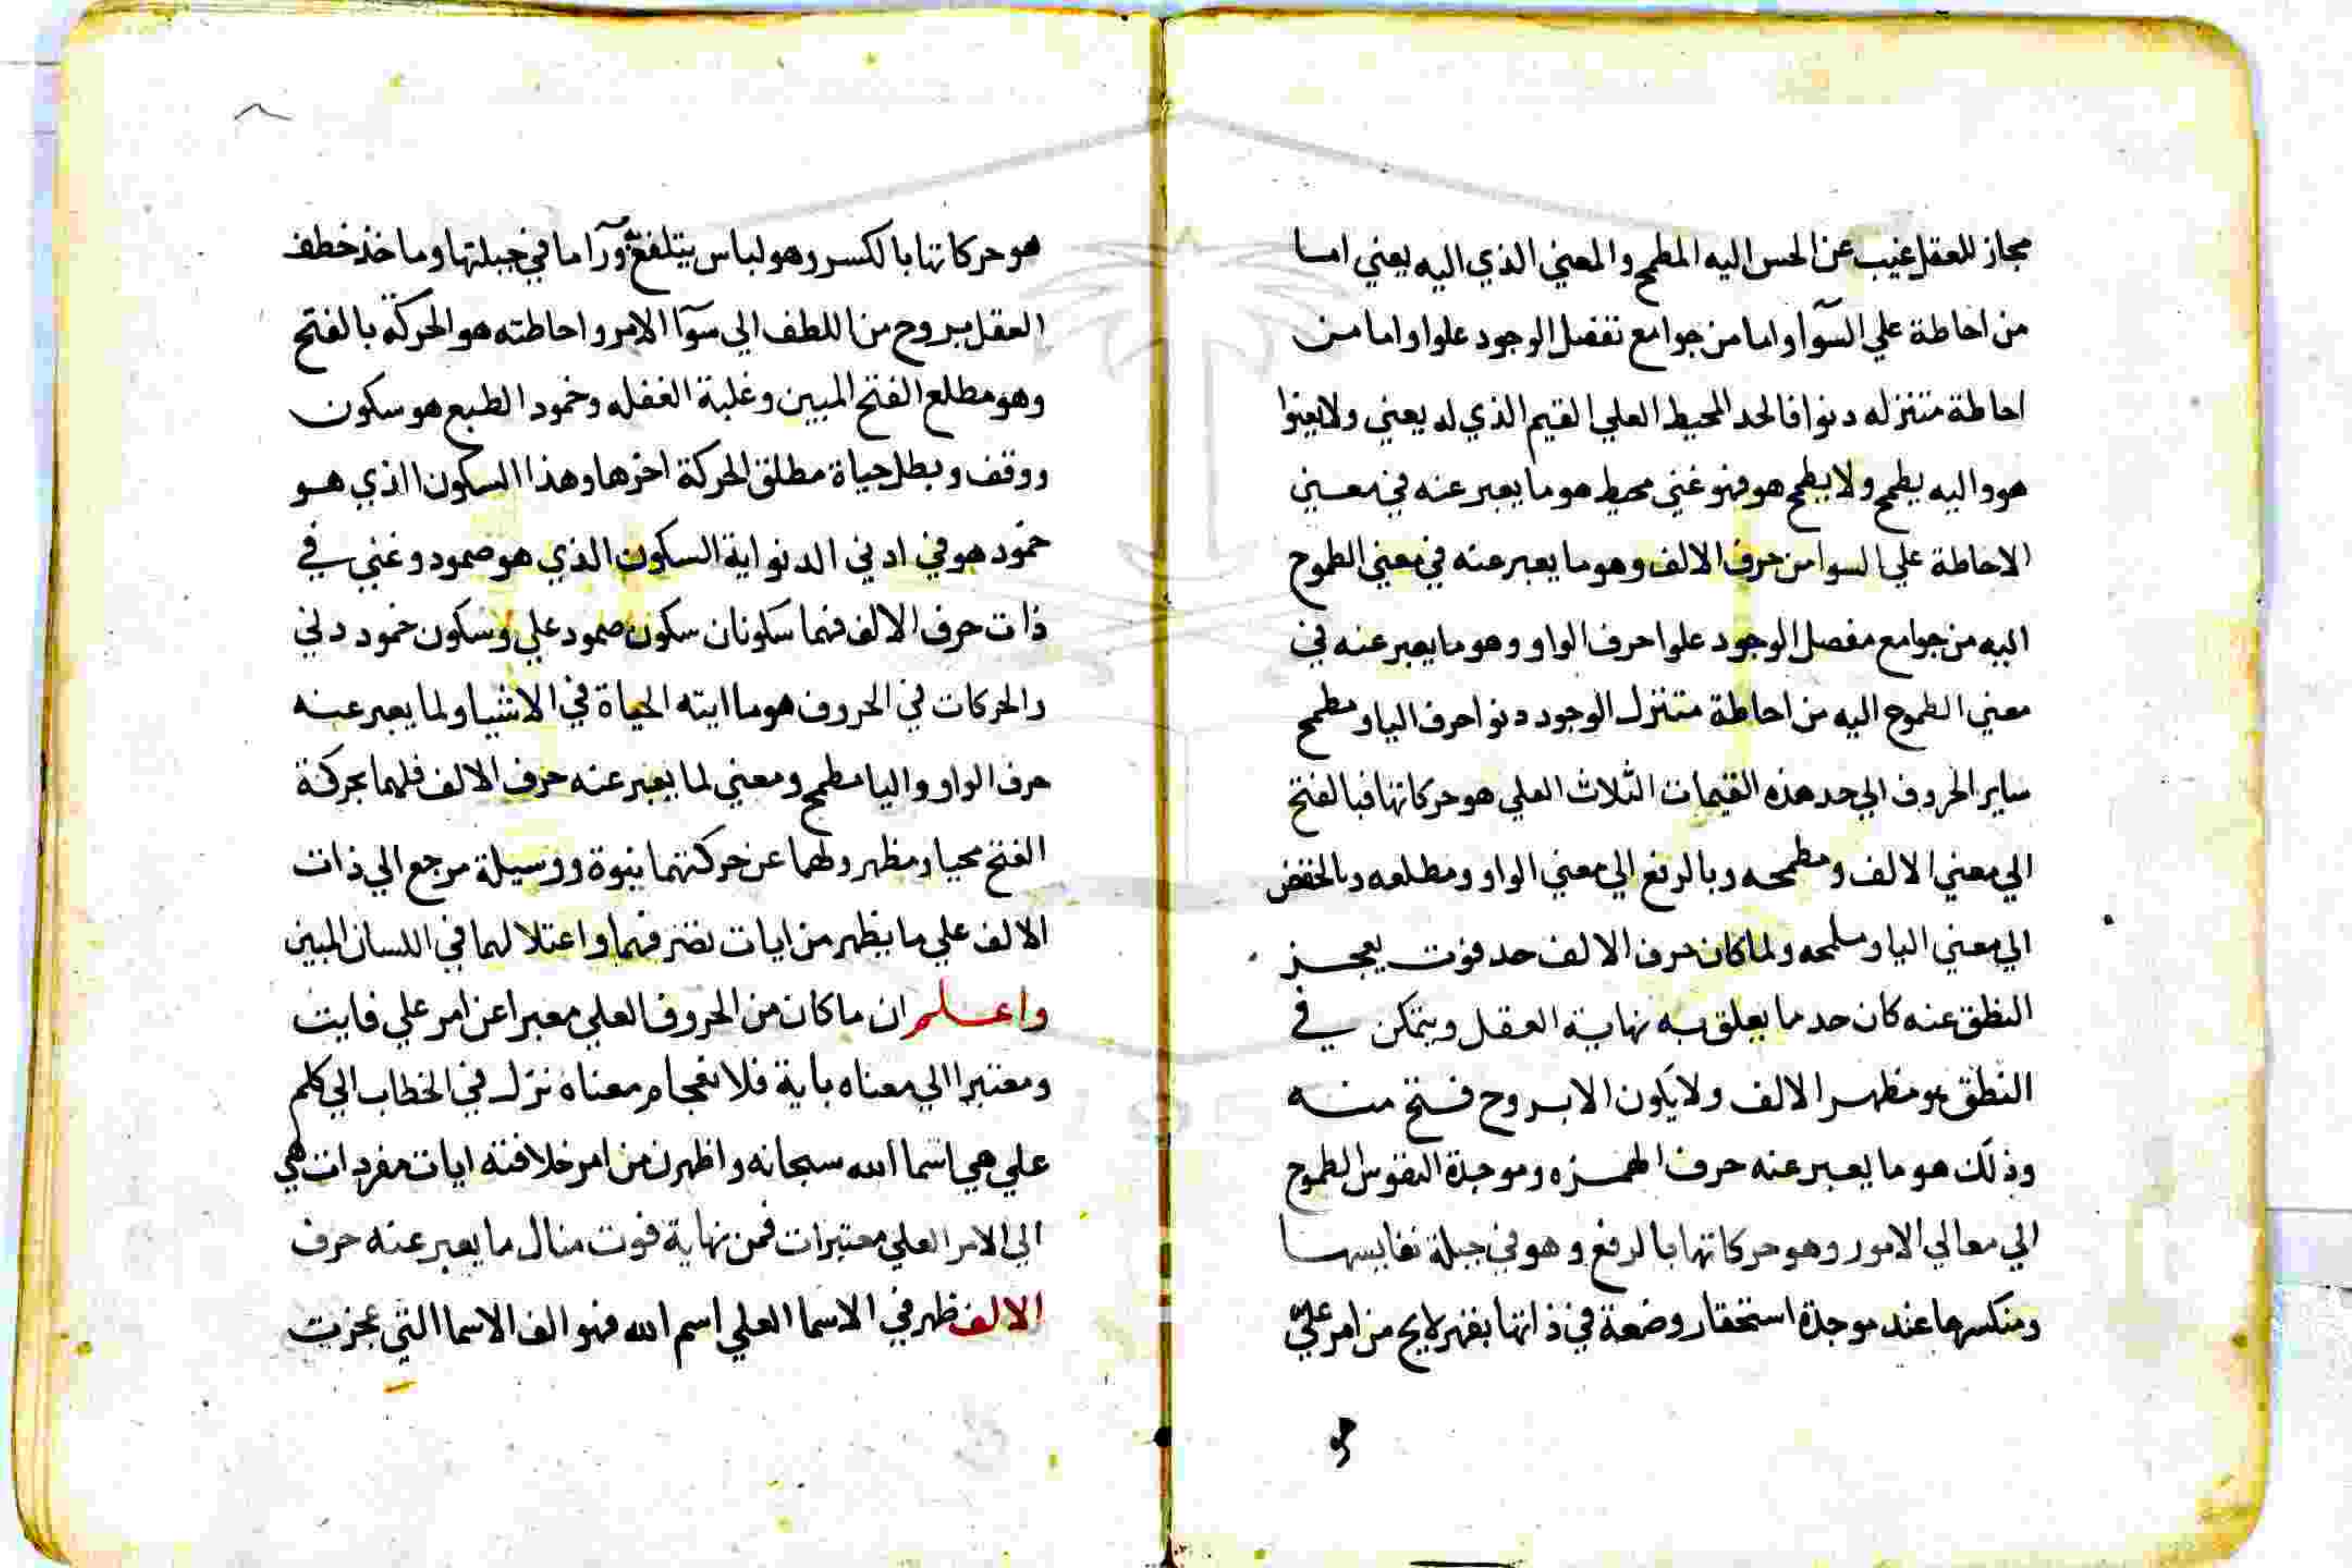 مجاز للعقل غيب عن الحس اليه المطمح والمعني الذي اليه يعني اما
من احاطة علي السوآ واما من جوامع تفصل الوجود علوا واما من
احاطة متنزله دنوا فالحد المحيط العلي القيم الذي له يعني ولا يعنوا
هو واليه يطمح ولا يطمح هو فهو غني محيط هو ما يعبر عنه في معني
الاحاطة علي السوا من حرف الالف وهو ما يعبر عنه في معني الطموح
اليه من جوامع مفصل الوجود علوا حرف الواو وهو ما يعبر عنه في
معني الطموح اليه من احاطة متنزل الوجود دنوا حرف اليا ومطمح
ساير الحروف الي حد هذه القيمات الثلاث العلي هو حركاتها فبالفتح
الي معني الالف ومطمحه وبالرفع الي معني الواو ومطلعه وبالخفض
الي معني اليا و ولما كان حرف الالف حد فوت يعجز
النطق عنه كان حد ما يعلق به نهاية العقل ويتمكن في
النطق هو مظهر الالف ولا يكون الا بروح فتح منه
وذلك هو ما يعبر عنه حرف الهمزه وموجدة النفوس الطموح
الي معالي الامور وهو حركاتها بالرفع وهو في جبلة نفايسها
ومنكسرها عند موجدة استحقار وضعة في ذاتها بقهر لايح من امر علي
هو
هو حركاتها بالكسر وهو لباس يتلفع ورآ ما في جبلتها وماخذ خطف
العقل بروح من اللطف الي سوآ الامر واحاطته هو الحركة بالفتح
وهو مطلع الفتح المبين وغلبة الغفله وخمود الطبع هو سكون
ووقف وبطل حياة مطلق الحركة اخرها وهذا السكون الذي هو
خمود هو في ادني الدنو اية السكون الذي هو صمود وغني في
ذات حرف الالف فهما سكونان سكون صمود علي وسكون خمود دني
والحركات في الحروف هو ما ايته الحياة في الاشيا ولما يعبر عنه
حرف الواو واليا مطمح ومعني لما يعبر عنه حرف الالف فلهما بحركة
الفتح محيا ومظهر ولهما عن حركتهما بنبوة ووسيلة مرجع الي ذات
الالف علي ما يظهر من ايات تصرفهما واعتلالهما في اللسان المبين
واعلم ان ما كان من الحروف العلي معبرا عن امر علي فايت
ومعتبرا الي معناه باية فلانفجام معناه نزل في الخطاب الي كلم
علي هي اسما الله سبحانه واظهرن من امر خلافته ايات مفردات هي
الي الامر العلي معتبرات فمن نهاية فوت منال ما يعبر عنه حرف
الالف ظهر في الاسما العلي اسم الله فهو الف الاسما التي عجزت